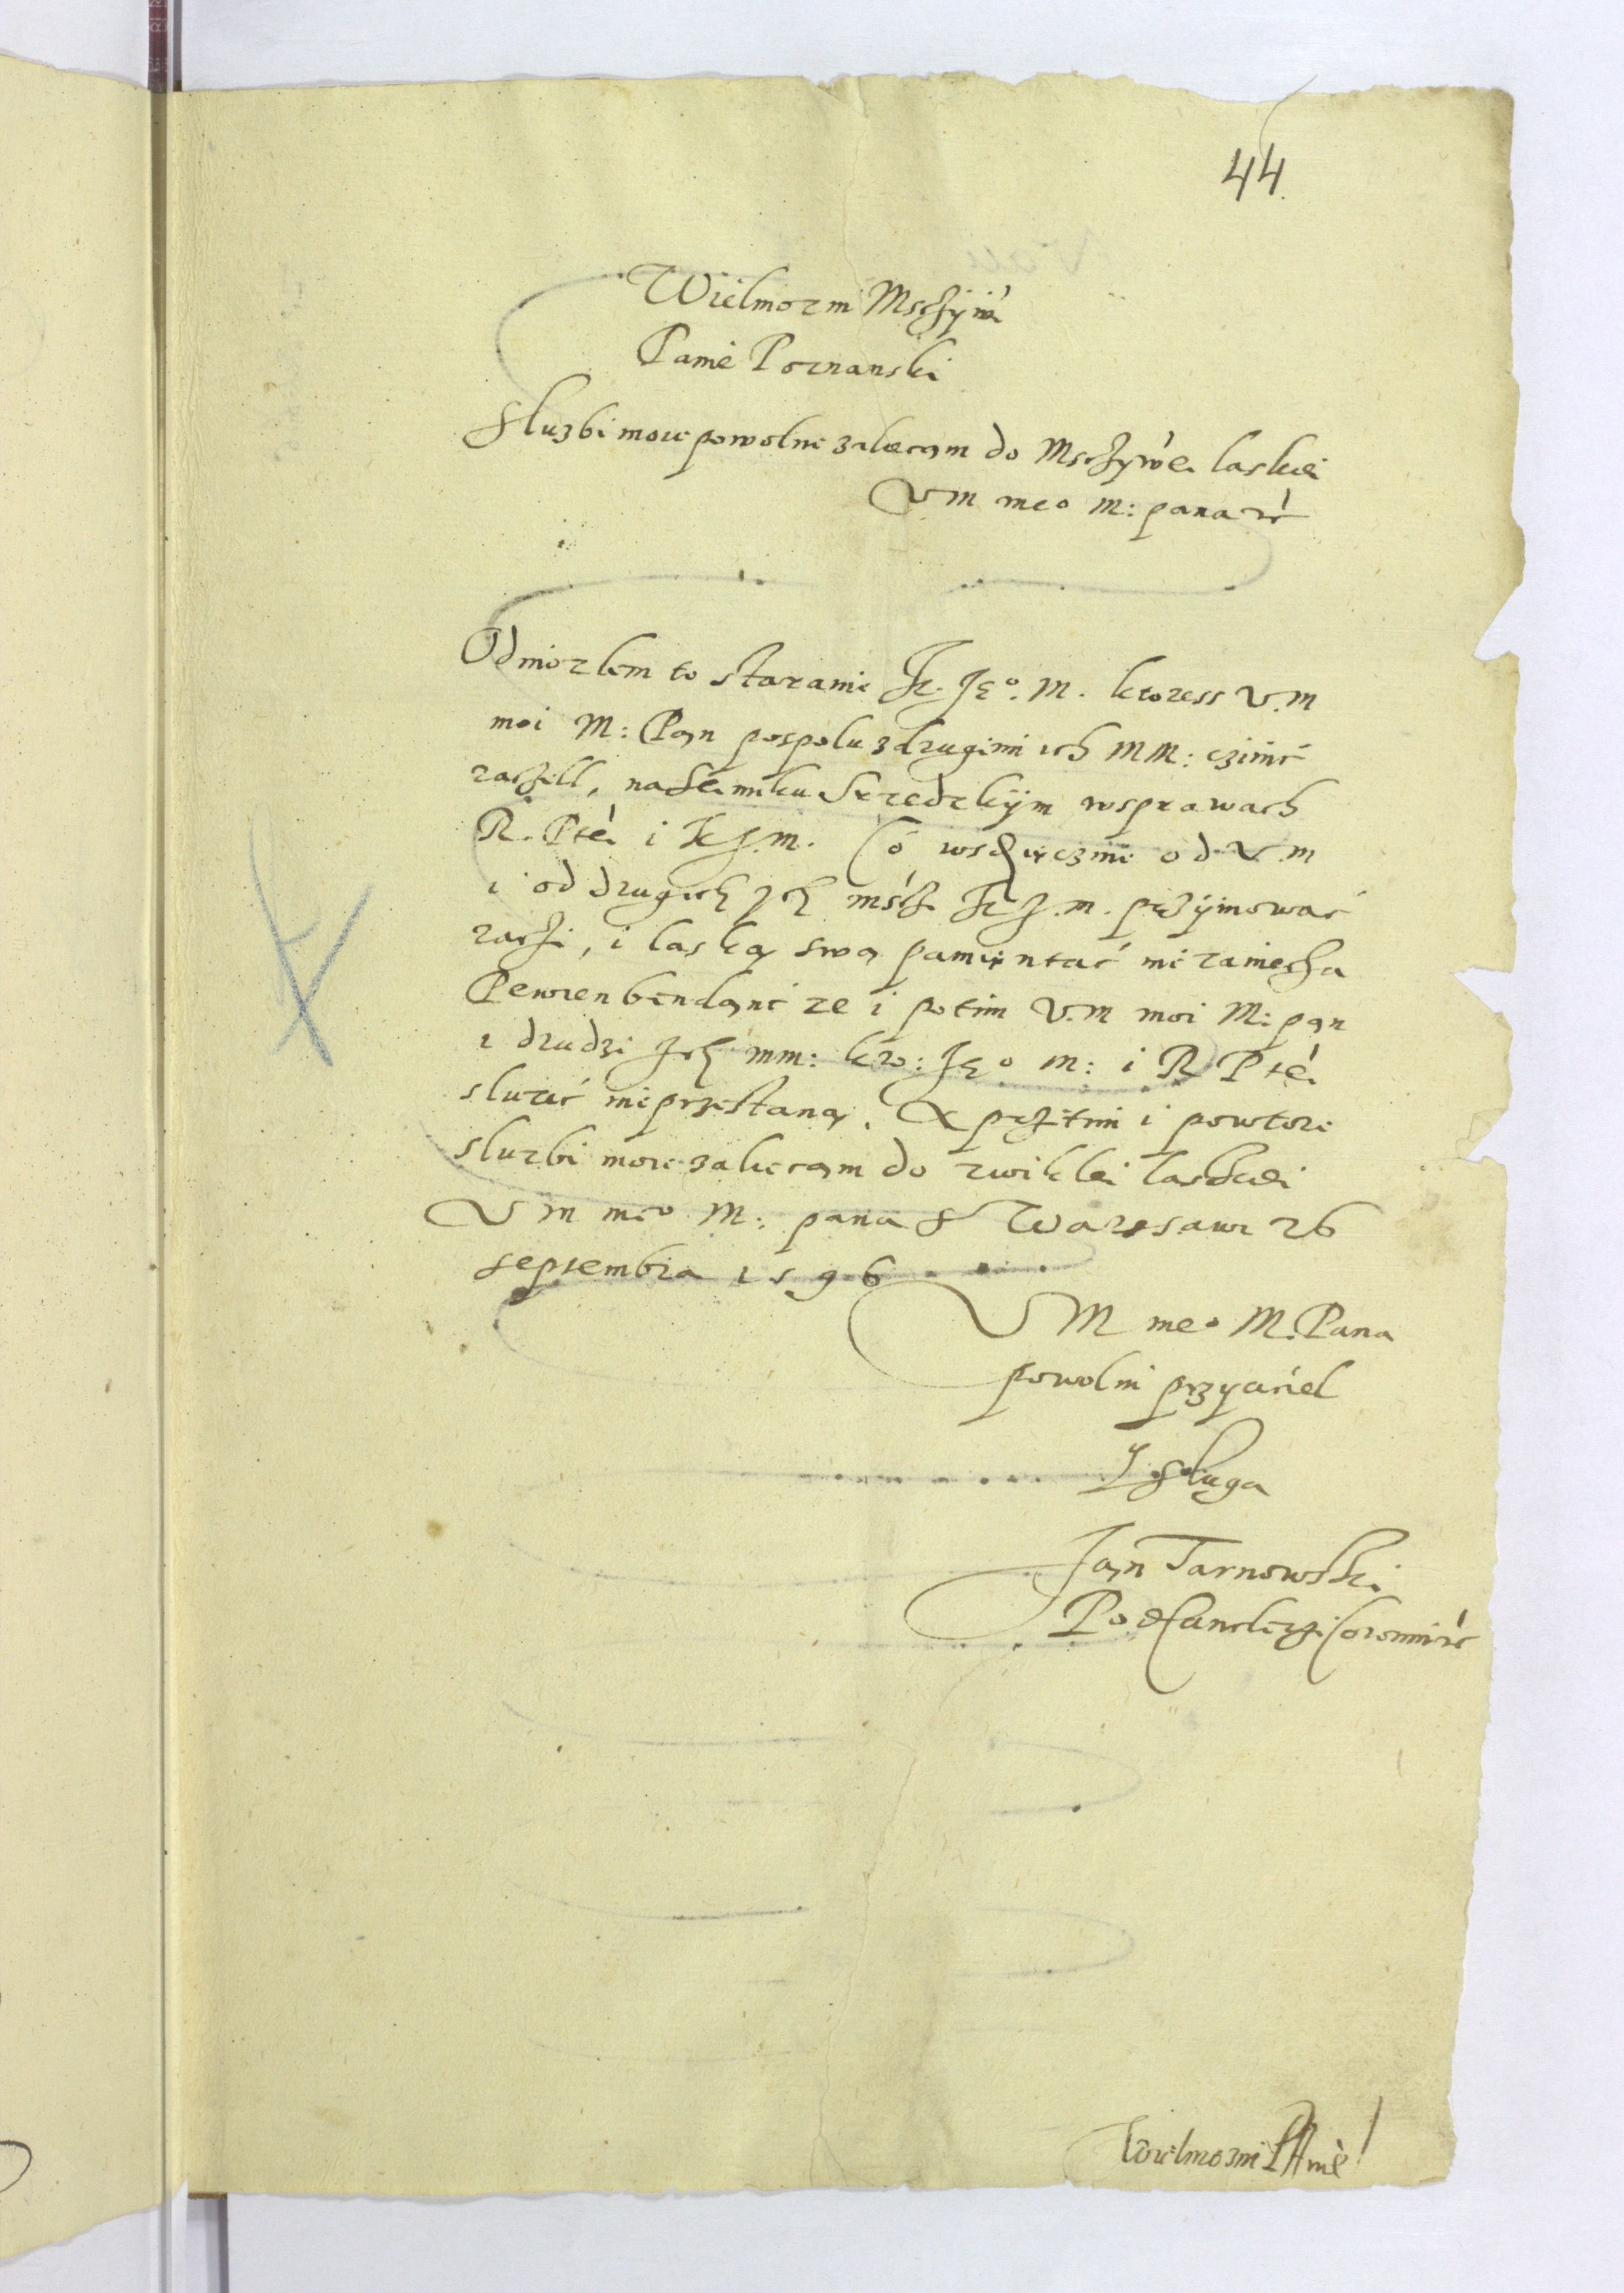 44
Wielmozni Mscziwi
Panie Poznanski
Sluzbi moie powolne zalecam do Mscziwei laskiei
VM me° M: pana etc
Odniozlem to staranie K. Je°. M. ktoress V.M
moi M: Pan pospolu z drugimi ich MM: czinić
raczill, na Seimiku Srzedzkijm w sprawach
R. Ptéi i K J. M. Co wdzięcznie od V.M
i od drugich Jch mśći K J. M. przijmować
raczi, i laską swą pamientać nie zaniecha
Pewien bendąnc ze i potim V.M moi M: pan
i drudzi Jch MM: kro: Je° M: i R Ptéi
sluzić nie przestaną. A przitim i powtore
sluzbi moie zalecam do zwiklei laskiei
VM me° M: pana S Warssawi 26
septembra 1596
VM me° M. Pana
powolni przyaciel
Y sluga
Jan Tarnowski
Podcanclerzi Coronni etc
Wielmozni PAnie